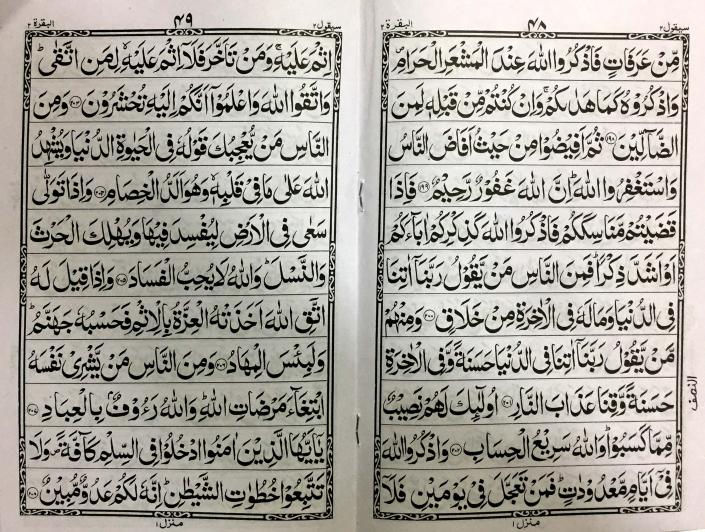 سيقول ٢
٤٨
البقرة ٢
مِّنْ عَرَفَاتٍ فَاذْكُرُوا اللّٰهَ عِنْدَ الْمَشْعَرِ الْحَرَامِ ۪
وَاذْكُرُوْهُ كَمَا هَدٰىكُمْ ۚ وَاِنْ كُنْتُمْ مِّنْ قَبْلِهٖ لَمِنَ
الضَّآلِّيْنَ ﴿١٩٨﴾ ثُمَّ اَفِيْضُوْا مِنْ حَيْثُ اَفَاضَ النَّاسُ
وَاسْتَغْفِرُوا اللّٰهَ ؕ اِنَّ اللّٰهَ غَفُوْرٌ رَّحِيْمٌ ﴿١٩٩﴾ فَاِذَا
قَضَيْتُمْ مَّنَاسِكَكُمْ فَاذْكُرُوا اللّٰهَ كَذِكْرِكُمْ اٰبَآءَكُمْ
اَوْ اَشَدَّ ذِكْرًا ؕ فَمِنَ النَّاسِ مَنْ يَّقُوْلُ رَبَّنَاۤ اٰتِنَا
فِى الدُّنْيَا وَمَا لَهٗ فِى الْاٰخِرَةِ مِنْ خَلَاقٍ ﴿٢٠٠﴾ وَمِنْهُمْ
مَّنْ يَّقُوْلُ رَبَّنَاۤ اٰتِنَا فِى الدُّنْيَا حَسَنَةً وَّفِى الْاٰخِرَةِ
حَسَنَةً وَّقِنَا عَذَابَ النَّارِ ﴿٢٠١﴾ اُولٰٓئِكَ لَهُمْ نَصِيْبٌ
مِّمَّا كَسَبُوْا ؕ وَاللّٰهُ سَرِيْعُ الْحِسَابِ ﴿٢٠٢﴾ وَاذْكُرُوا اللّٰهَ
فِىْۤ اَيَّامٍ مَّعْدُوْدٰتٍ ؕ فَمَنْ تَعَجَّلَ فِىْ يَوْمَيْنِ فَلَاۤ
النصف
منزل ١
سيقول ٢
٤٩
البقرة ٢
اِثْمَ عَلَيْهِ ۚ وَمَنْ تَاَخَّرَ فَلَاۤ اِثْمَ عَلَيْهِ ۙ لِمَنِ اتَّقٰى ؕ
وَاتَّقُوا اللّٰهَ وَاعْلَمُوْۤا اَنَّكُمْ اِلَيْهِ تُحْشَرُوْنَ ﴿٢٠٣﴾ وَمِنَ
النَّاسِ مَنْ يُّعْجِبُكَ قَوْلُهٗ فِى الْحَيٰوةِ الدُّنْيَا وَيُشْهِدُ
اللّٰهَ عَلٰى مَا فِىْ قَلْبِهٖ ۙ وَهُوَ اَلَدُّ الْخِصَامِ ﴿٢٠٤﴾ وَاِذَا تَوَلّٰى
سَعٰى فِى الْاَرْضِ لِيُفْسِدَ فِيْهَا وَيُهْلِكَ الْحَرْثَ
وَالنَّسْلَ ؕ وَاللّٰهُ لَا يُحِبُّ الْفَسَادَ ﴿٢٠٥﴾ وَاِذَا قِيْلَ لَهُ
اتَّقِ اللّٰهَ اَخَذَتْهُ الْعِزَّةُ بِالْاِثْمِ فَحَسْبُهٗ جَهَنَّمُ ؕ
وَلَبِئْسَ الْمِهَادُ ﴿٢٠٦﴾ وَمِنَ النَّاسِ مَنْ يَّشْرِىْ نَفْسَهُ
ابْتِغَآءَ مَرْضَاتِ اللّٰهِ ؕ وَاللّٰهُ رَءُوْفٌۢ بِالْعِبَادِ ﴿٢٠٧﴾
يٰۤاَيُّهَا الَّذِيْنَ اٰمَنُوا ادْخُلُوْا فِى السِّلْمِ كَآفَّةً ۪ وَلَا
تَتَّبِعُوْا خُطُوٰتِ الشَّيْطٰنِ ؕ اِنَّهٗ لَكُمْ عَدُوٌّ مُّبِيْنٌ ﴿٢٠٨﴾
منزل ١